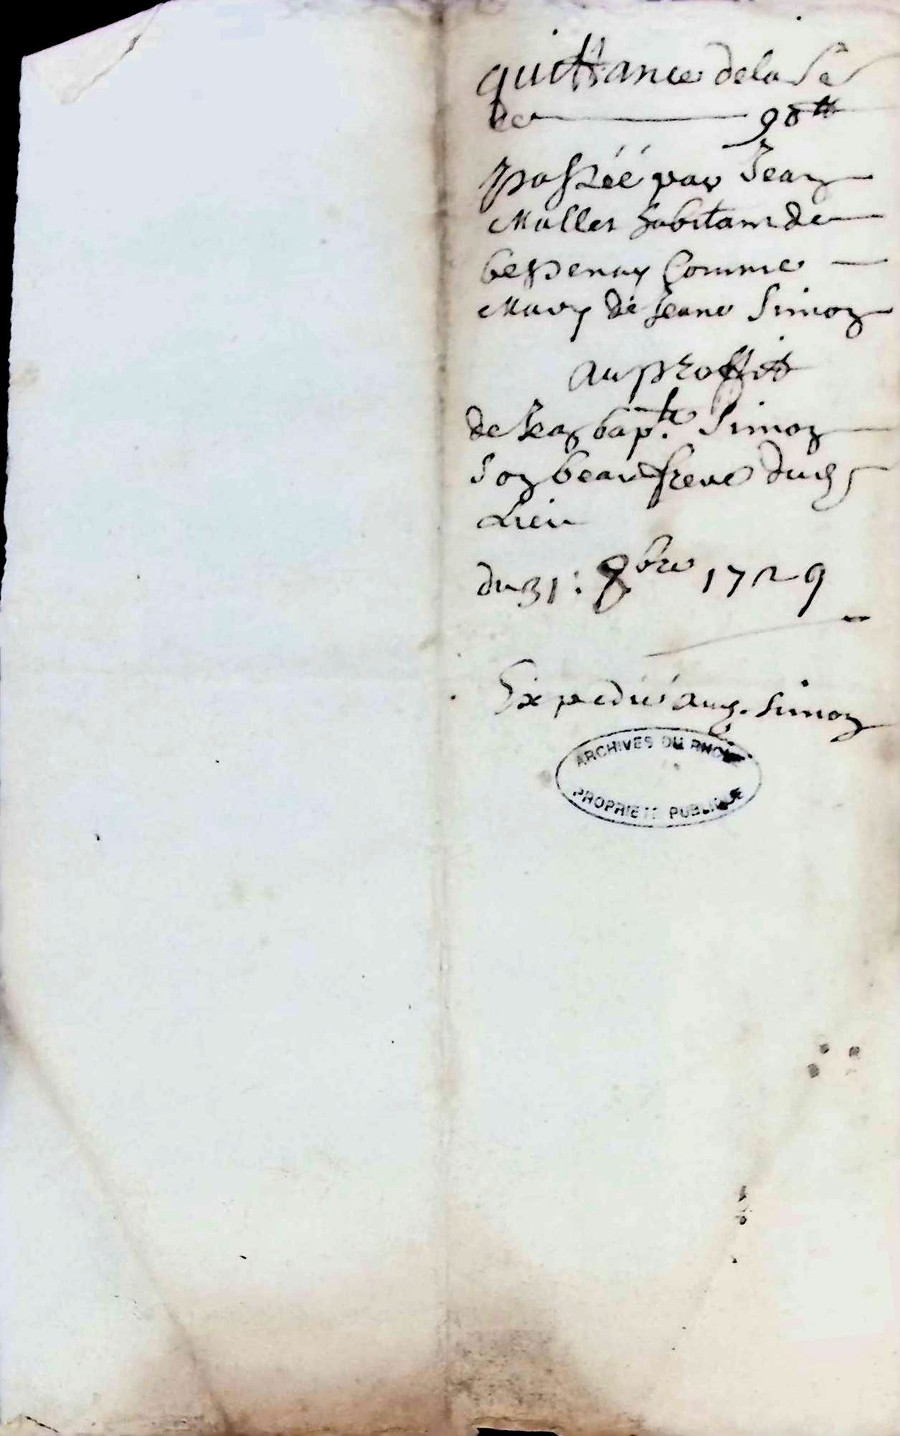 quittance de la Se
de 90tt
passéé par Jean
Mullet habitant de
bessenay Comme
Mary de Jeane Simon
au proffit
de Jean bapt.e Simon
Son beaufrere dud
Lieu
du 31: 8bre 1729
Expedié aud. Simon
ARCHIVES DU RHONE
PROPRIETE PUBLIQUE